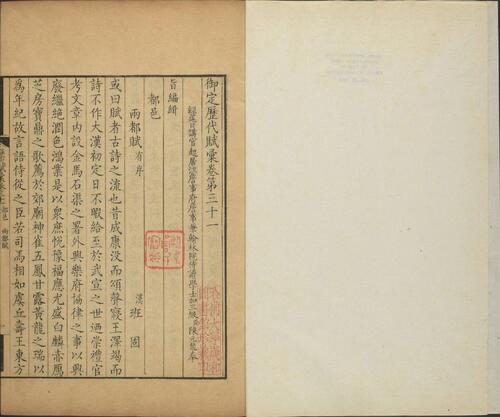 御定歷代賦彙卷第三十一
經筵日講官起居注詹事府詹事兼翰林院侍讀學士加三級臣陳元龍奉
旨編緝
都邑
兩都賦有序
漢班固
或曰賦者古詩之流也昔成康沒而頌聲寢王澤竭而
詩不作大漢初定日不暇給至於武宣之世迺崇禮官
考文章內設金馬石渠之署外興樂府協律之事以興
廢繼絶潤色鴻業是以衆庶恱豫福應尤盛白麟赤鴈
芝房寶鼎之歌薦於郊廟神雀五鳳甘露黃龍之瑞以
爲年紀故言語侍從之臣若司馬相如虞丘壽王東方